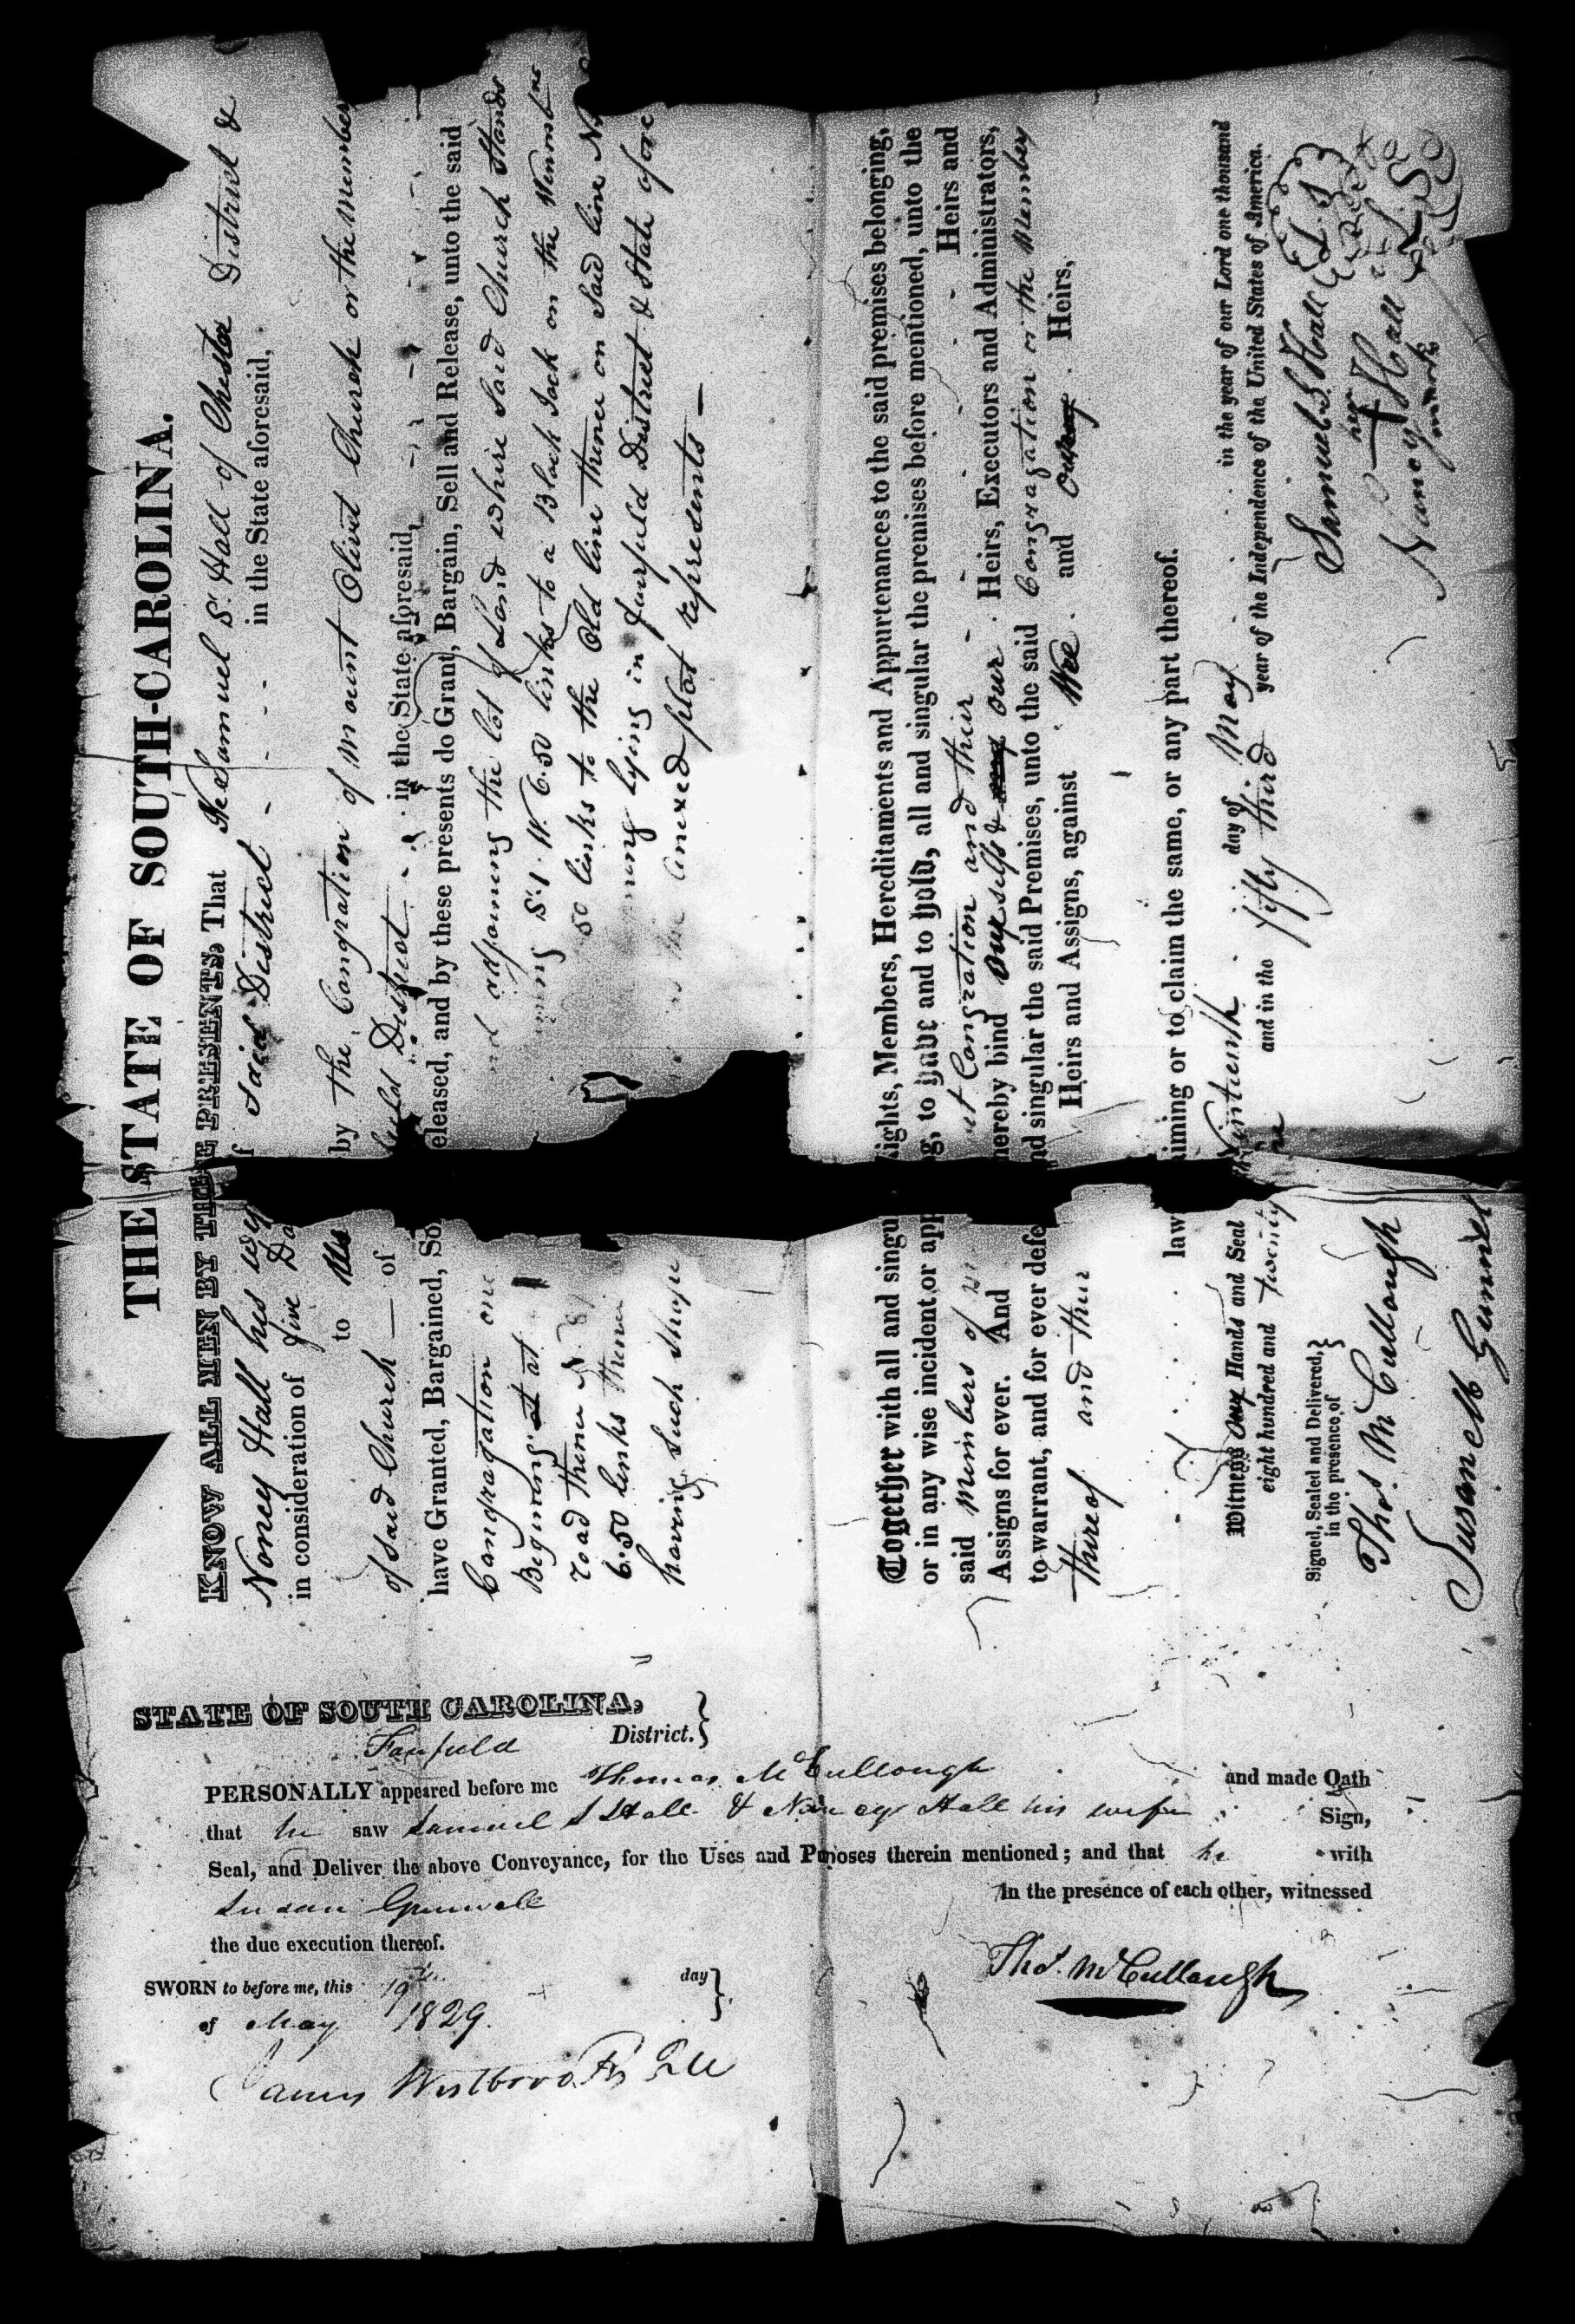 THE STATE OF SOUTH-CAROLINA.
KNOW ALL MEN BY THESE PRESENTS, That We Samuel S. Hall of Chester District &
Noncy Hall his of said District - - - - in the State aforesaid,
in consideration of five
to Us by the Congration of mount Olivet Church or the Members
of Said Church — of District in the State aforesaid,
have Granted, Bargained, So eleased, and by these presents do Grant, Bargain, Sell and Release, unto the said
Congragation one adjoining the lot of Land whire Said Church Stands
Begining at at S. 1. W. 6.50 links to a Black Jack on the
road thence N 81 50 links to the Old line thence on Said line
6.50 links thence lying in Fairfield District & State afore
having Such Shape as the anexed plat represents —
Together with all and singu ights, Members, Hereditaments and Appurtenances to the said premises belonging,
or in any wise incident or app g, to have and to hold, all and singular the premises before mentioned, unto the
said Members of Congration and their - - - Heirs and
Assigns for ever. And hereby bind Our selfs & our Heirs, Executors and Administrators,
to warrant, and for ever defe nd singular the said Premises, unto the said Congragation or the Members
thereof and their Heirs and Assigns, against Wee and our Heirs,
law iming or to claim the same, or any part thereof.
Witness Our Hands and Seal Ninteenth day of May in the year of our Lord one thousand
eight hundred and twenty and in the fifty third year of the Independence of the United States of America.
Signed, Sealed and Delivered,
in the presence of
Samuel S Hall L. S
Thos. McCullough
her
Nancy + Hall L. S
mark
Susan
STATE OF SOUTH CAROLINA,
Fairfield District.
PERSONALLY appeared before me Thomas McCullough and made Oath
that he saw Samuel S Hall & Nancy Hall his wife Sign,
Seal, and Deliver the above Conveyance, for the Uses and Purposes therein mentioned; and that he with
Susan in the presence of each other, witnessed
the due execution thereof.
SWORN to before me, this 19th day
of May 1829.
Thos. McCullough
James Westbrook